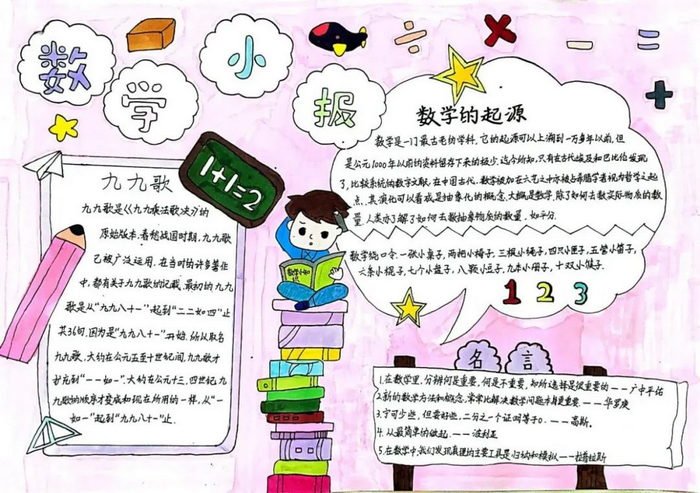 数学小报
÷ × - =
+
1+1=2
九九歌
九九歌是《九九乘法歌决》的
原始版本.春秋战国时期,九九歌
已被广泛运用.在当时的许多著作
中.都有关于九九歌的记载.最初的九九
歌是从"九九八十一"起到"二二如四"止
共36句.因为是"九九八十一"开始.所以取名
九九歌.大约在公元五至十世纪间,九九歌才
扩充到"一一如一".大约在公元十三,四世纪,九
九歌的顺序才变成和现在所用的一样,从"一一
如一"起到"九九八十一"止.
数学的起源
数学是一门最古老的学科,它的起源可以上溯到一万多年以前,但
是公元1000年以前的资料留存下来的极少.迄今所知,只有在古代埃及和巴比伦发现
了比较系统的数学文献.在中国古代,数学被
点.其演化可以看成是抽象化的
量.人类亦了解了如何去数抽象物质的数量.如平分.
数学绕口令:一张小桌子,两把小椅子,三根小绳子,四只小匣子,五管小笛子,
六条小棍子,七个小盘子,八颗小豆子,九本小册子,十双小筷子.
1 2 3
数学知识
名言
1.在数学里,分辨何是重要,何是不重要,知所选择是很重要的——广中平佑
2.新的数学方法和概念,常常比解决数学问题本身更重要.——华罗庚
3.宁可少些,但要好些,二分之一个证明等于0.——高斯.
4.从最简单的做起.——波利亚
5.在数学中,我们发现真理的主要工具是归纳和模拟——拉普拉斯